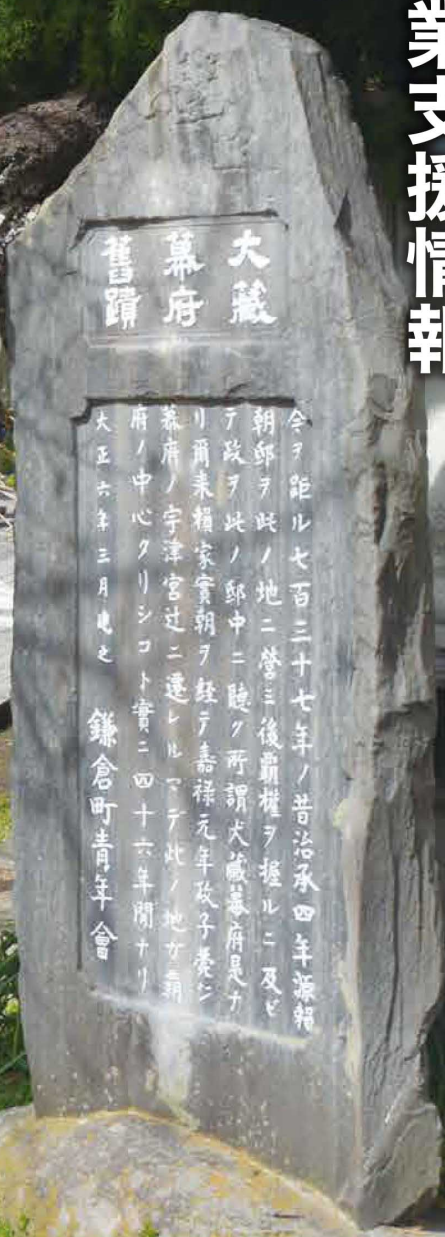 業支援情報
大蔵
幕府
舊蹟
今ヲ距ル七百三十七年ノ昔治承四年源頼
朝邸ヲ此ノ地ニ營ミ後覇權ヲ握ルニ及ビ
テ政ヲ此ノ邸中ニ聽ク所謂大蔵幕府是ナ
リ爾来頼家實朝ヲ経テ嘉禄元年政子薨ジ
幕府ノ宇津宮辻ニ遷レルマデ此ノ地ガ覇
府ノ中心タリシコト實ニ四十六年間ナリ
大正六年三月建之 鎌倉町青年會